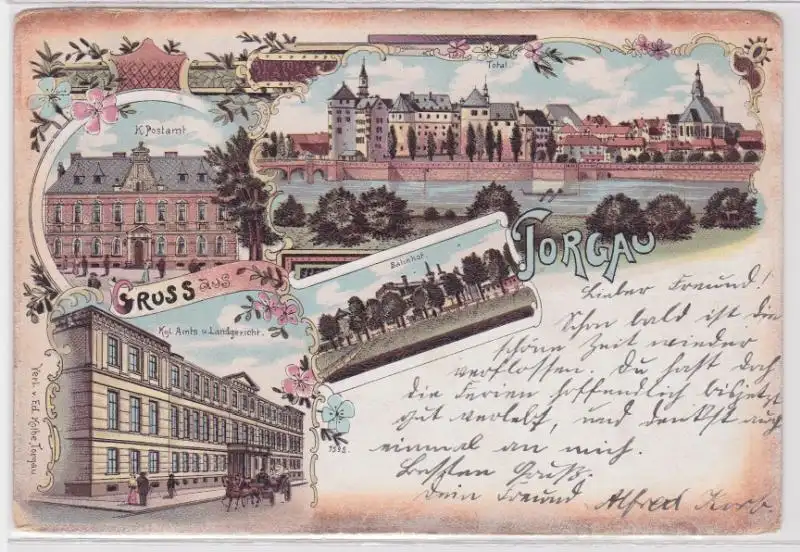 K. Postamt
Total.
GRUSS aus
TORGAU
Bahnhof
Kgl. Amts u. Landgericht.
Verl. v. Ed. Kothe, Torgau
Lieber Freund!
Schon bald ist die
schöne Zeit wieder
verflossen. Du hast doch
die Ferien hoffendlich bis jetzt
gut verlebt, und denkst auch
einmal an mich.
Besten Gruß.
Dein Freund Alfred